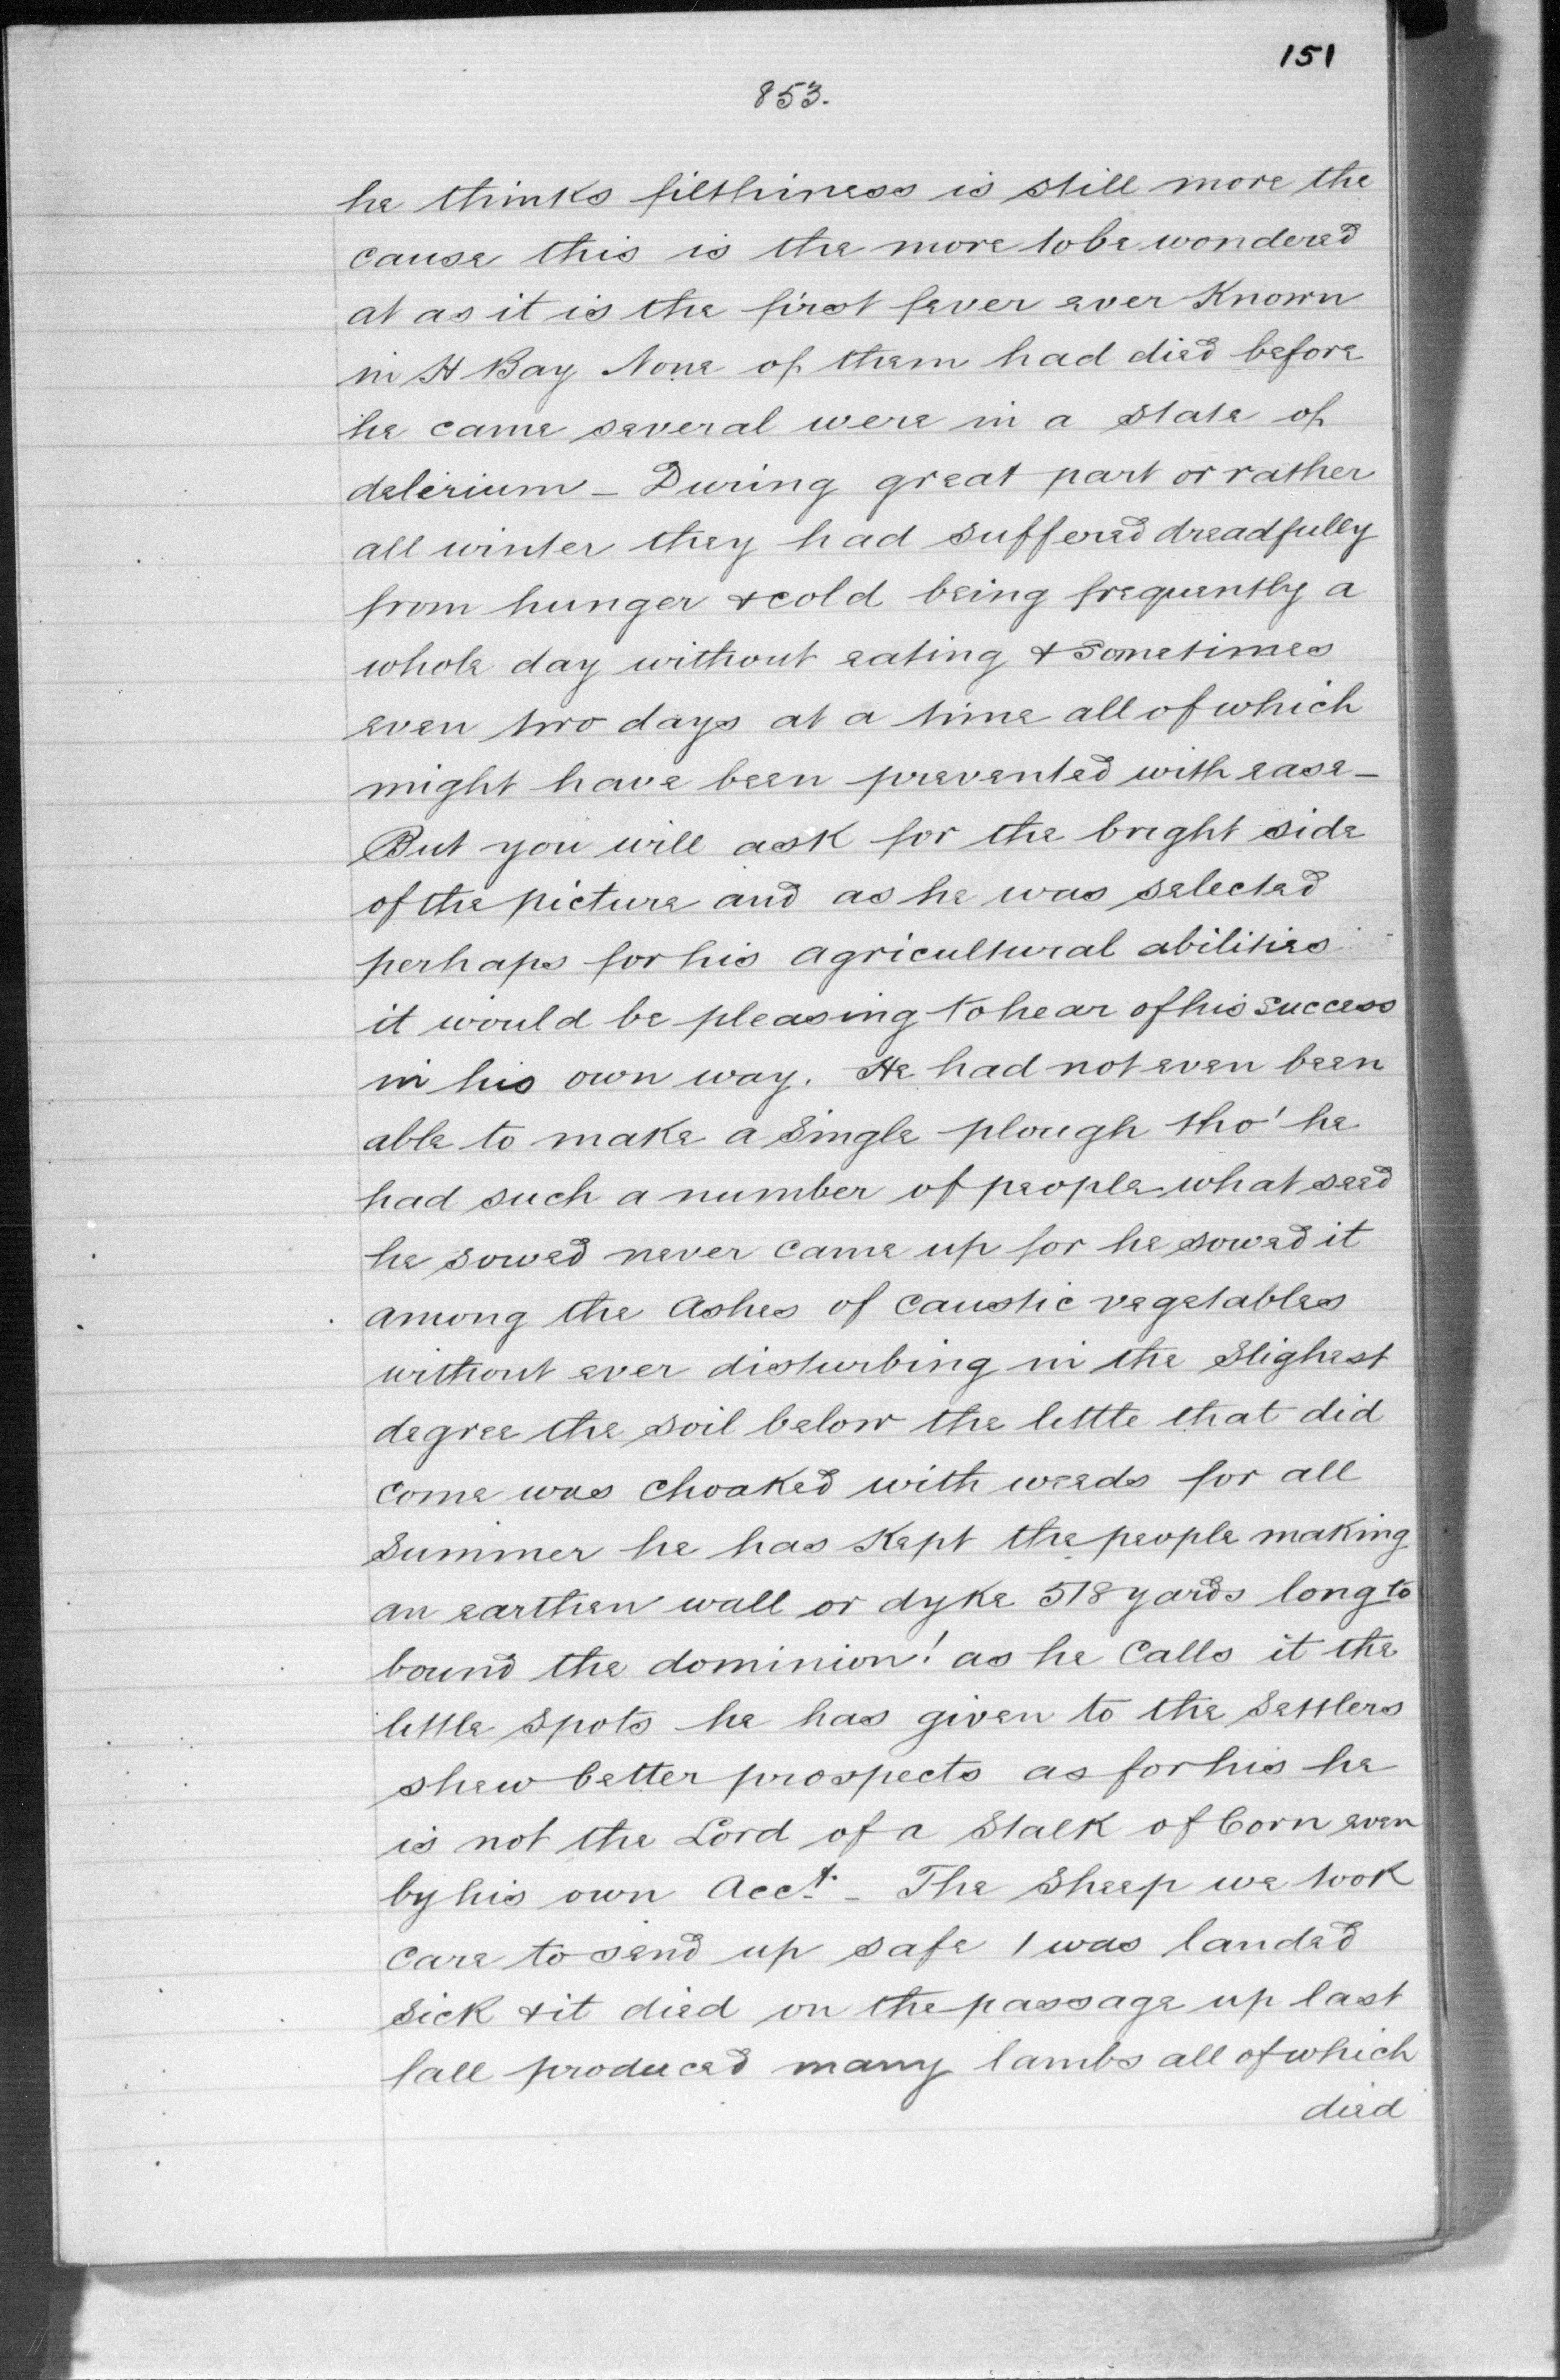 151
853.
he thinks filthiness is still more the
cause this is the more to be wondered
at as it is the first fever ever Known
in H Bay None of them had died before
he came several were in a state of
delirium – During great part or rather
all winter they had suffered dreadfully
from hunger & cold being frequently a
whole day without eating & Sometimes
even two days at a time all of which
might have been prevented with ease –
But you will ask for the bright side
of the picture and as he was selected
perhaps for his agricultural abilities
it would be pleasing to hear of his success
in his own way. He had not even been
able to make a Single plough tho' he
had such a number of people what seed
he sowed never came up for he sowed it
among the Ashes of Caustic vegetables
without ever disturbing in the Slighest
degree the soil below the little that did
come was choaked with weeds for all
Summer he has Kept the people making
an earthen wall or dyke 518 yards long to
bound the dominion! as he Calls it the
little Spots he has given to the Settlers
shew better prospects as for his he
is not the Lord of a Stalk of Corn even
by his own Acct. – The Sheep we took
Care to send up safe 1 was landed
Sick & it died on the passage up last
fall produced many lambs all of which
died